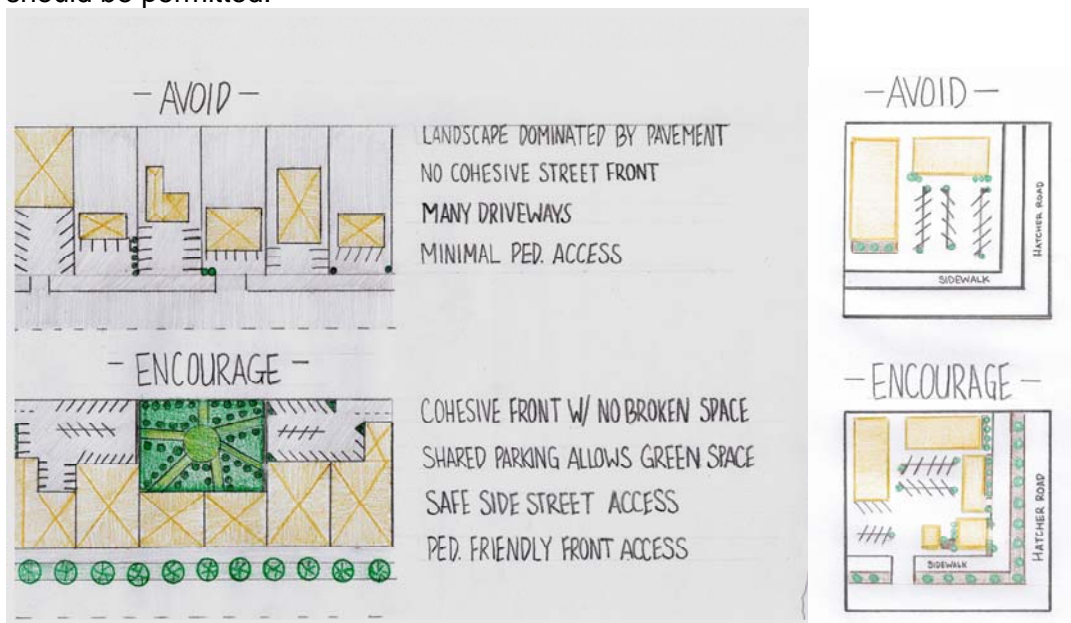 should be permitted.
- AVOID -
LANDSCAPE DOMINATED BY PAVEMENT
NO COHESIVE STREET FRONT
MANY DRIVEWAYS
MINIMAL PED. ACCESS
- ENCOURAGE -
COHESIVE FRONT W/ NO BROKEN SPACE
SHARED PARKING ALLOWS GREEN SPACE
SAFE SIDE STREET ACCESS
PED. FRIENDLY FRONT ACCESS
- AVOID -
HATCHER ROAD
SIDEWALK
- ENCOURAGE -
HATCHER ROAD
SIDEWALK